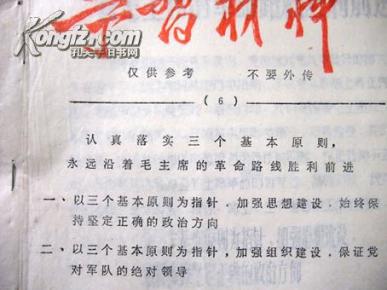 学习材料
Kongfz.com
孔夫子旧书网
仅供参考 不要外传
(6)
认真落实三个基本原则,
永远沿着毛主席的革命路线胜利前进
一、以三个基本原则为指针,加强思想建设,始终保
持坚定正确的政治方向
二、以三个基本原则为指针,加强组织建设,保证党
对军队的绝对领导